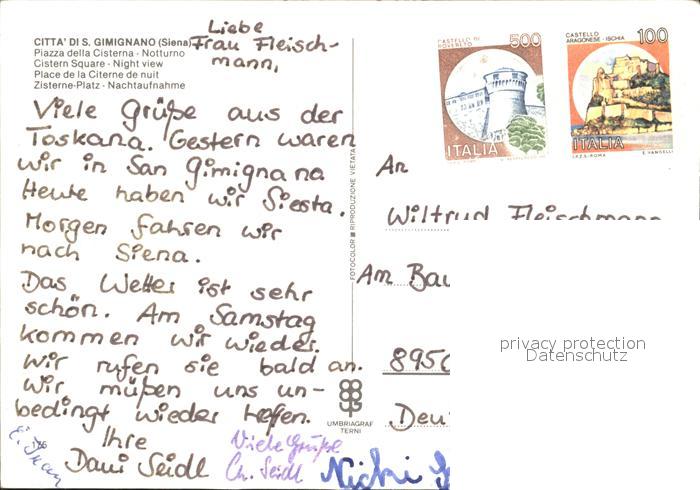 CITTA' DI S. GIMIGNANO (Siena)
Piazza della Cisterna - Notturno
Cistern Square - Night view
Place de la Citerne de nuit
Zisterne-Platz - Nachtaufnahme
Liebe
Frau Fleisch-
mann,
Viele Grüße aus der
Toskana. Gestern waren
wir in San Gimignana
Heute haben wir Siesta.
Morgen fahren wir
nach Siena.
Das Wetter ist sehr
schön. Am Samstag
kommen wir wieder.
Wir rufen sie bald an.
Wir müßen uns un-
bedingt wieder treffen.
Ihre
Dani Seidl
Viele Grüße
Ch. Seidl
Nicki
FOTOCOLOR RIPRODUZIONE VIETATA
UMBRIAGRAF
TERNI
CASTELLO DI
ROVERETO
500
ITALIA
CASTELLO
ARAGONESE - ISCHIA
100
ITALIA
I.P.Z.S. - ROMA
E. VANGELLI
An
Wiltrud Fleischmann
Am Bau
895
Deu
privacy protection
Datenschutz